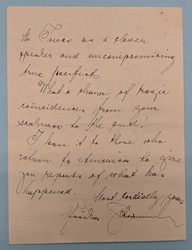 the Times as a clever
speaker and uncompromising
true pacifist.
What a chain of tragic
coincidences from your
sealness to the end!
I leave it to those who
return to America to give
you reports of what has
happened.
Most cordially yours